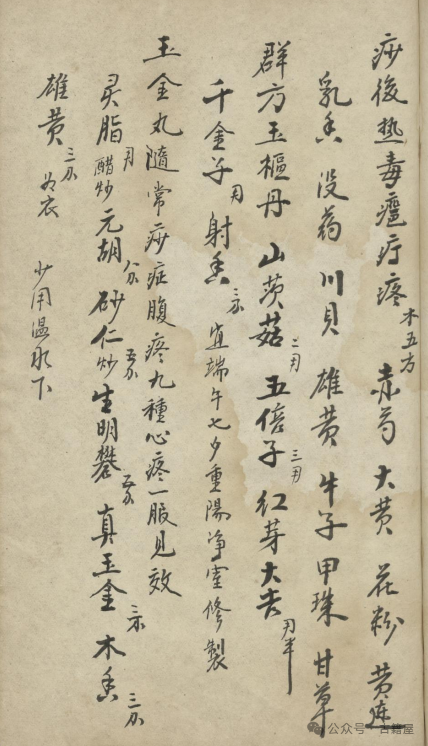 痧後熱毒瘟疔疼 木五方 赤芍 大黄 花粉 黄連
乳香 没药 川貝 雄黄 牛子 甲珠 甘草
群方玉樞丹 山茨菇二月 五倍子三月 红芽大吉月半
千金子月 射香三分 宜端午七夕重陽净室修製
玉金丸随常痧症腹疼九種心疼一服見效
灵脂醋炒月 元胡八分 砂仁炒五分 生明礬五分 真玉金三分 木香三分
雄黄三分为衣 少用温水下
公众号·古籍屋